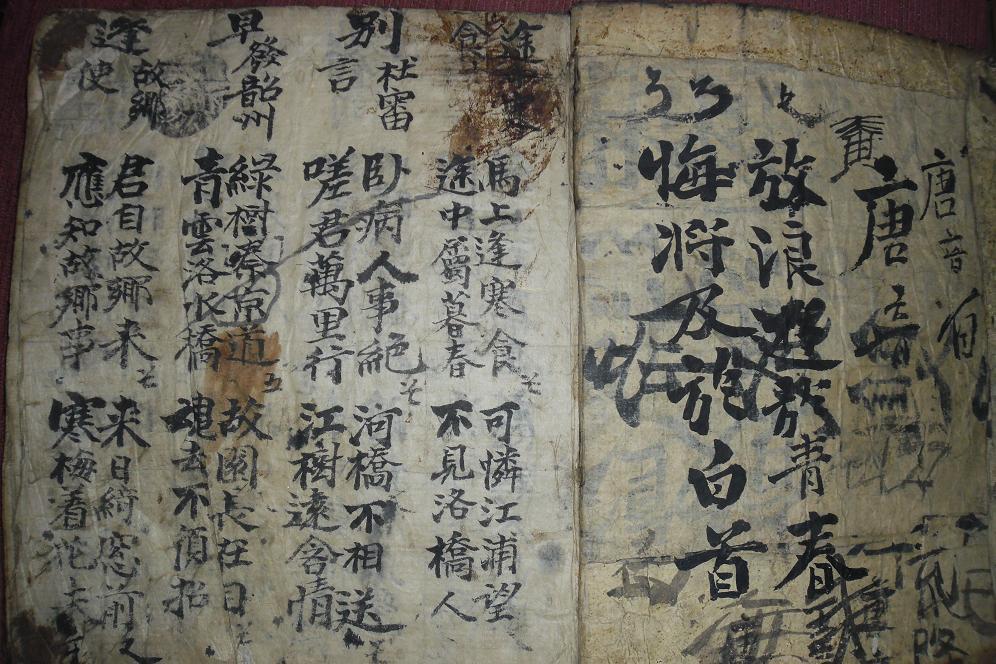 唐音
唐音
放浪遊於青春
悔将及於白首
途中寒食
馬上逢寒食 可憐江浦望
途中屬暮春 不見洛橋人
別杜審言
臥病人事絕 河橋不相送
嗟君萬里行 江樹遠含情
早發韶州
綠樹秦京道 故關長在日
青雲洛水橋 魂去不須招
逢故鄉使
君自故鄉来 来日綺窓前
應知故鄉事 寒梅着花未